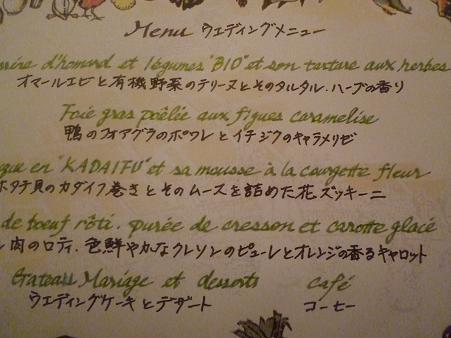 Menu ウエディングメニュー
d'homard et légumes "BIO" et son tartare aux herbes
オマールエビと有機野菜のテリーヌとそのタルタル.ハーブの香り
Foie gras poêlée aux figues caramelise
鴨のフォアグラのポワレとイチジクのキャラメリゼ
en "KADAIFU" et sa mousse à la courgette fleur
ホタテ貝のカダイフ巻きとそのムースを詰めた花ズッキーニ
de boeuf rôti. purée de cresson et carotte glacé
肉のロティ.色鮮やかなクレソンのピューレとオレンジの香るキャロット
Gateau Mariage et desserts Café
ウエディングケーキとデザート コーヒー